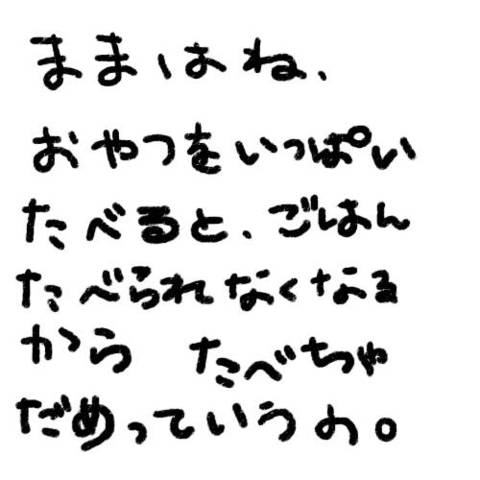 ままはね、
おやつをいっぱい
たべると、ごはん
たべられなくなる
から たべちゃ
だめっていうの。